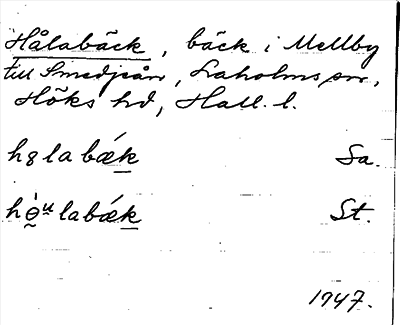 Hålabäck, bäck i Mellby
till Smedjeån, Laholms sn,
Höks hd, Hall. l.
hȣlabǽk Sa.
hò̤ᵘlabǽk St.
1947.